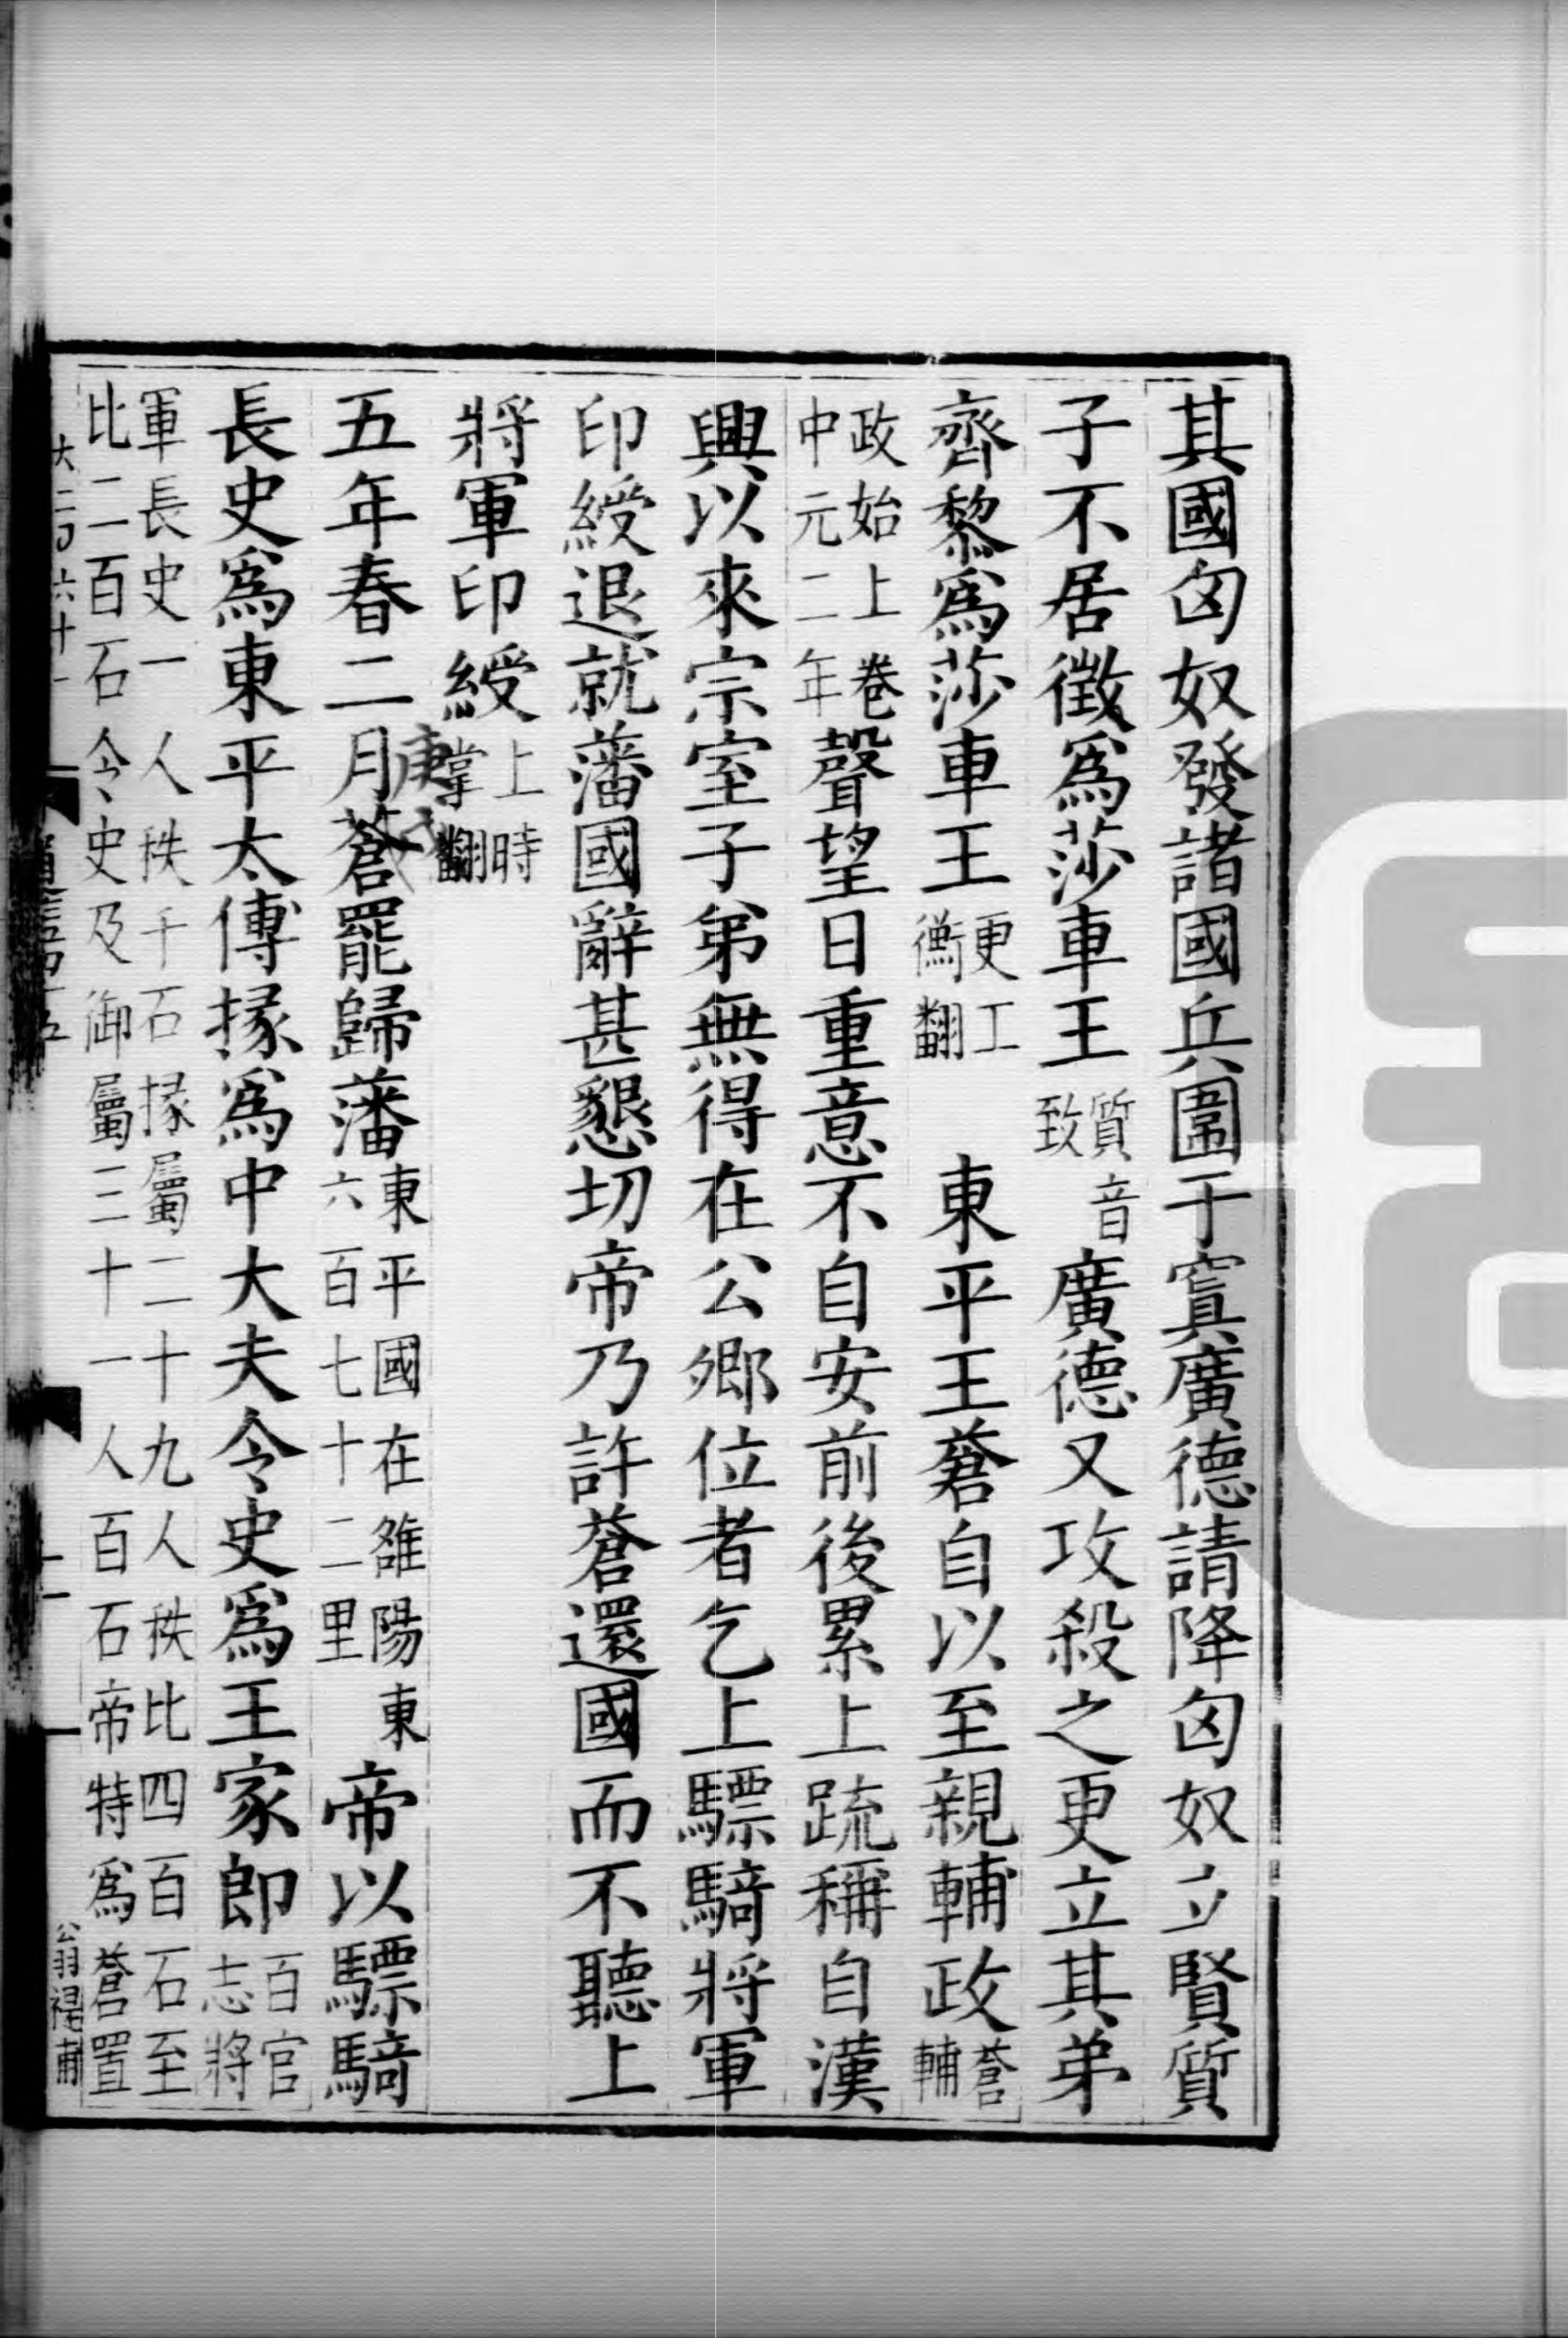 其國匈奴發諸國兵圍于窴廣德請降匈奴立賢質
子不居徵爲莎車王質音致廣德又攻殺之更立其弟
齊黎爲莎車王更工衡翻東平王蒼自以至親輔政蒼輔
政始上卷中元二年聲望日重意不自安前後累上疏稱自漢
興以來宗室子弟無得在公卿位者乞上驃騎將軍
印綬退就藩國辭甚懇切帝乃許蒼還國而不聽上
將軍印綬上時掌翻
五年春二月庚戌蒼罷歸藩東平國在雒陽東六百七十二里帝以驃騎
長史爲東平太傅掾爲中大夫令史爲王家郎百官志將
軍長史一人秩千石掾屬二十九人秩比四百石至比二百石令史及御屬三十一人百石帝特爲蒼置
十一